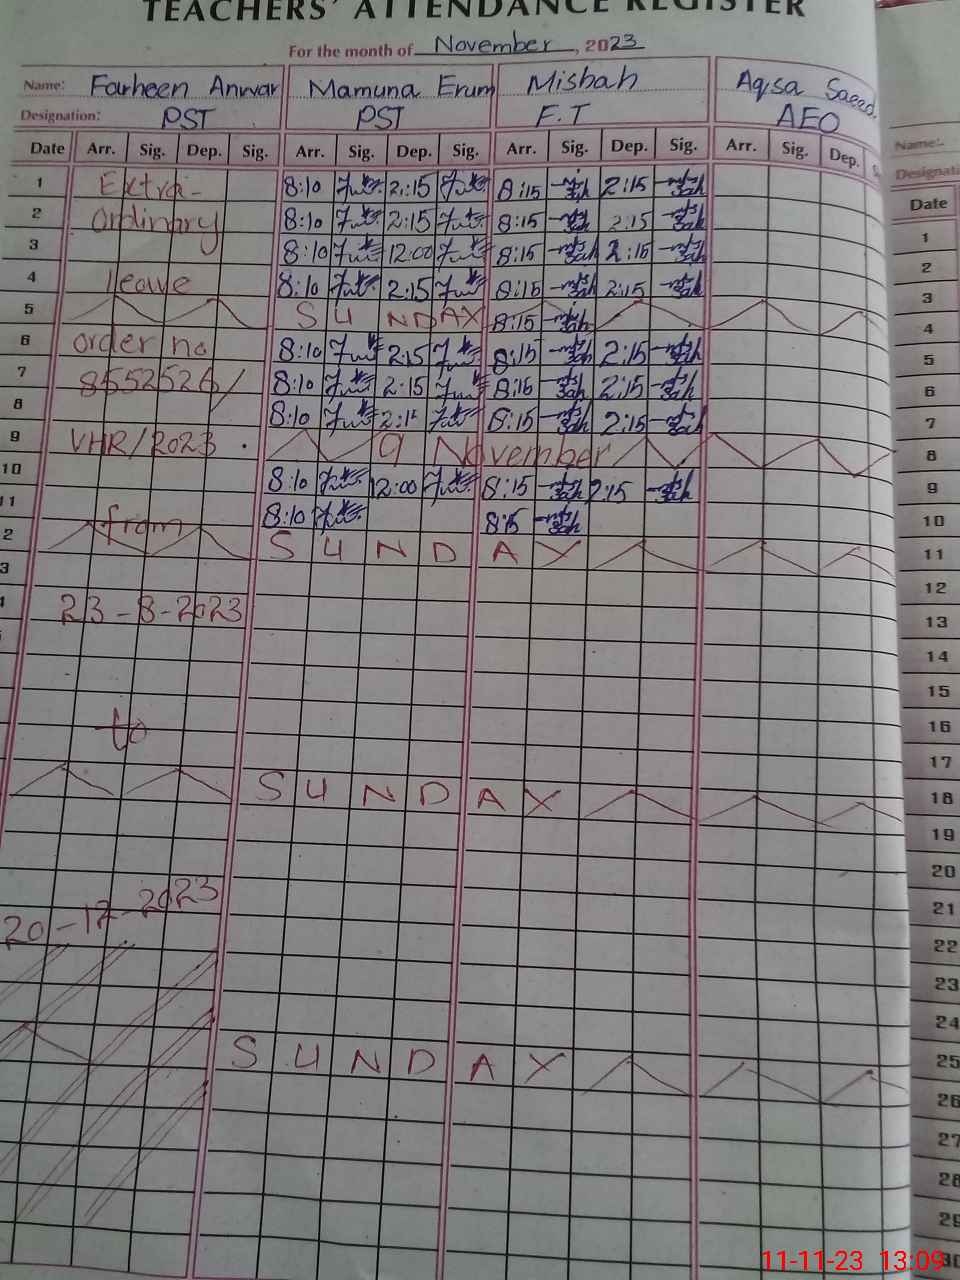 TEACHERS' ATTENDANCE REGISTER
For the month of November, 2023
Name: Farheen Anwar Mamuna Erum Misbah Aqsa Saeed.
Designation: PST PST F.T AEO
Date Arr. Sig. Dep. Sig. Arr. Sig. Dep. Sig. Arr. Sig. Dep. Sig. Arr. Sig. Dep.
1 Extra- 8:10 2:15 8:15 2:15
2 ordinary 8:10 2:15 8:15 2:15
3 8:10 12:00 8:15 2:15
4 leave 8:10 2:15 8:15 2:15
5 SUNDAY 8:15
6 order no 8:10 2:15 8:15 2:15
7 8552526/ 8:10 2:15 8:15 2:15
8 8:10 8:15 2:15
9 VHR/2023. 9 November
10 8:10 12:00 8:15 2:15
11 8:10 8:15
2 from SUNDAY
3
23-8-2023
to
SUNDAY
20-12-2023
SUNDAY
Name:
Date
1
2
3
4
5
6
7
8
9
10
11
12
13
14
15
16
17
18
19
20
21
22
23
24
25
26
27
28
29
30
11-11-23 13:09